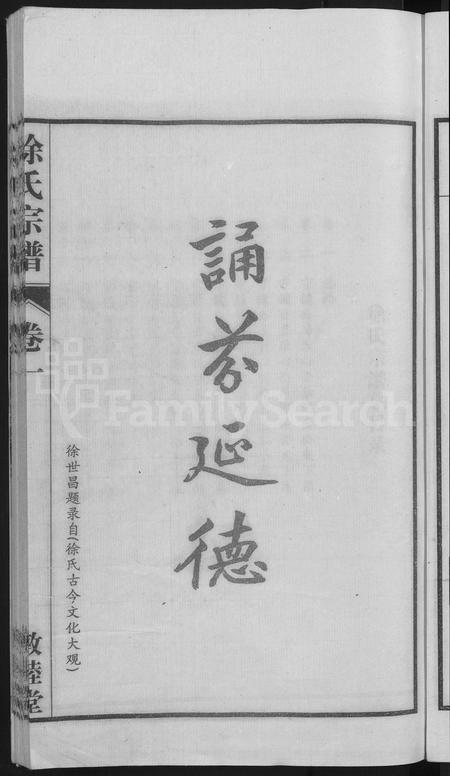 誦芬延德
徐世昌题录自(徐氏古今文化大观)
徐氏宗谱
卷一
敦睦堂
FamilySearch